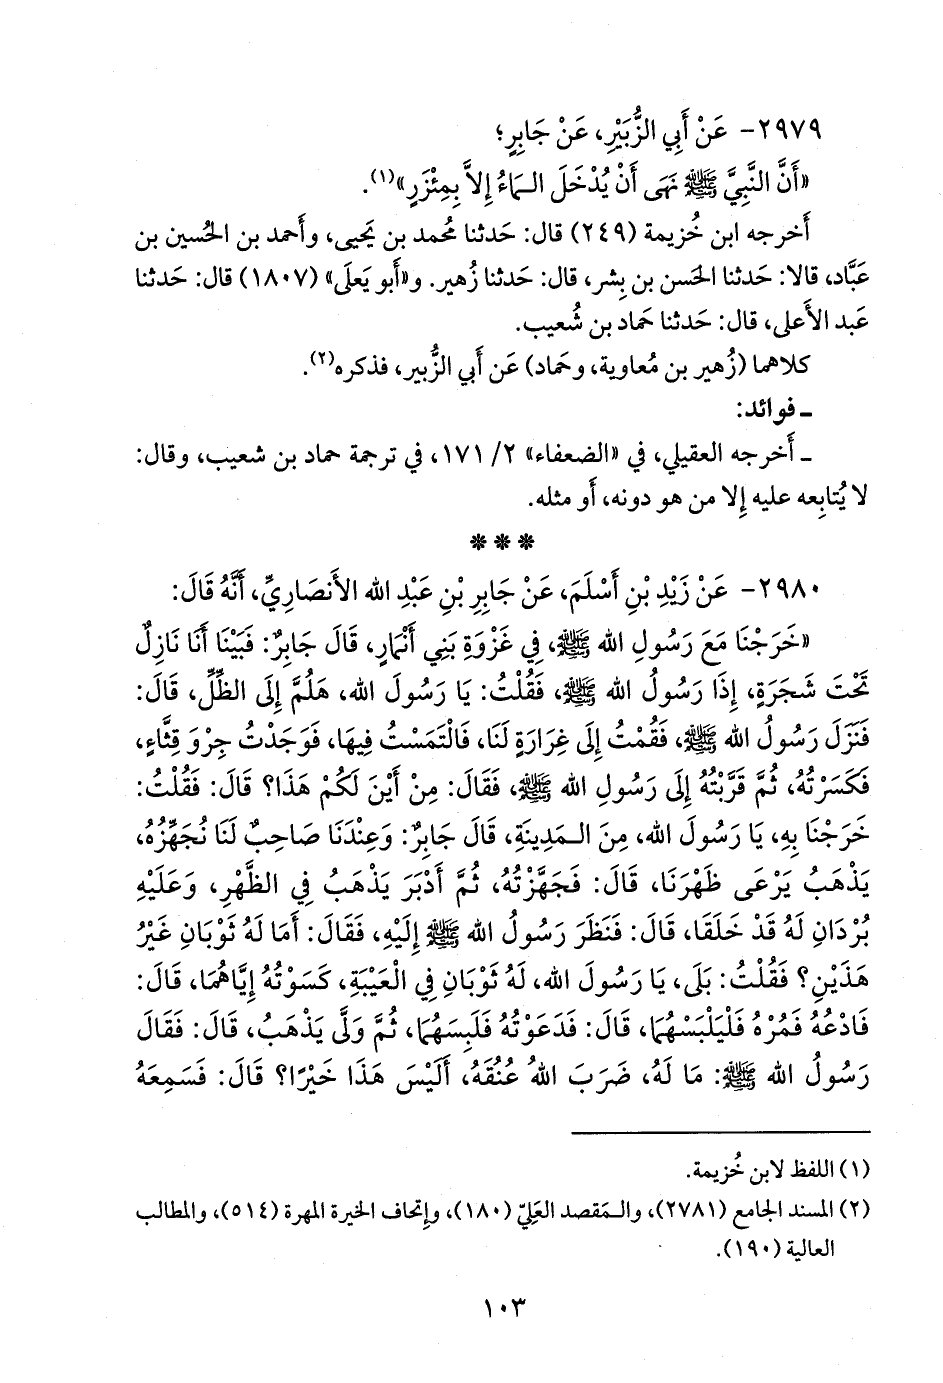 ٢٩٧٩- عَنْ أَبِي الزُّبَيْرِ، عَنْ جَابِرٍ؛
«أَنَّ النَّبِيَّ ﷺ نَهَى أَنْ يُدْخَلَ الـمَاءُ إِلاَّ بِمِئْزَرٍ»(١).
أَخرجه ابن خُزيمة (٢٤٩) قال: حَدثنا مُحمد بن يَحيى، وأَحمد بن الحُسين بن
عَبَّاد، قالا: حَدثنا الحَسن بن بِشر، قال: حَدثنا زُهير. و«أَبو يَعلَى» (١٨٠٧) قال: حَدثنا
عَبد الأَعلى، قال: حَدثنا حَماد بن شُعيب.
كلاهما (زُهير بن مُعاوية، وحَماد) عَن أَبي الزُّبير، فذكره(٢).
ـ فوائد:
ـ أَخرجه العقيلي، في «الضعفاء» ٢/ ١٧١، في ترجمة حماد بن شعيب، وقال:
لا يُتابِعه عليه إِلا من هو دونه، أَو مثله.
***
٢٩٨٠- عَنْ زَيْدِ بْنِ أَسْلَمَ، عَنْ جَابِرِ بْنِ عَبْدِ الله الأَنصَارِيِّ، أَنَّهُ قَالَ:
«خَرَجْنَا مَعَ رَسُولِ الله ﷺ، فِي غَزْوَةِ بَنِي أَنْمَارٍ، قَالَ جَابِرٌ: فَبَيْنَا أَنَا نَازِلٌ
تَحْتَ شَجَرَةٍ، إِذَا رَسُولُ الله ﷺ، فَقُلْتُ: يَا رَسُولَ الله، هَلُمَّ إِلَى الظِّلِّ، قَالَ:
فَنَزَلَ رَسُولُ الله ﷺ، فَقُمْتُ إِلَى غِرَارَةٍ لَنَا، فَالْتَمَسْتُ فِيهَا، فَوَجَدْتُ جِرْوَ قِثَّاءٍ،
فَكَسَرْتُهُ، ثُمَّ قَرَّبْتُهُ إِلَى رَسُولِ الله ﷺ، فَقَالَ: مِنْ أَيْنَ لَكُمْ هَذَا؟ قَالَ: فَقُلْتُ:
خَرَجْنَا بِهِ، يَا رَسُولَ الله، مِنَ الـمَدِينَةِ، قَالَ جَابِرٌ: وَعِنْدَنَا صَاحِبٌ لَنَا نُجَهِّزُهُ،
يَذْهَبُ يَرْعَى ظَهْرَنَا، قَالَ: فَجَهَّزْتُهُ، ثُمَّ أَدْبَرَ يَذْهَبُ فِي الظَّهْرِ، وَعَلَيْهِ
بُرْدَانِ لَهُ قَدْ خَلَقَا، قَالَ: فَنَظَرَ رَسُولُ الله ﷺ إِلَيْهِ، فَقَالَ: أَمَا لَهُ ثَوْبَانِ غَيْرُ
هَذَيْنِ؟ فَقُلْتُ: بَلَى، يَا رَسُولَ الله، لَهُ ثَوْبَانِ فِي الْعَيْبَةِ، كَسَوْتُهُ إِيَّاهُمَا، قَالَ:
فَادْعُهُ فَمُرْهُ فَلْيَلْبَسْهُمَا، قَالَ: فَدَعَوْتُهُ فَلَبِسَهُمَا، ثُمَّ وَلَّى يَذْهَبُ، قَالَ: فَقَالَ
رَسُولُ الله ﷺ: مَا لَهُ، ضَرَبَ اللهُ عُنُقَهُ، أَلَيْسَ هَذَا خَيْرًا؟ قَالَ: فَسَمِعَهُ
(١) اللفظ لابن خُزيمة.
(٢) المسند الجامع (٢٧٨١)، والـمَقصد العَلِيّ (١٨٠)، وإِتحاف الخيرة المهرة (٥١٤)، والمطالب
العالية (١٩٠).
١٠٣